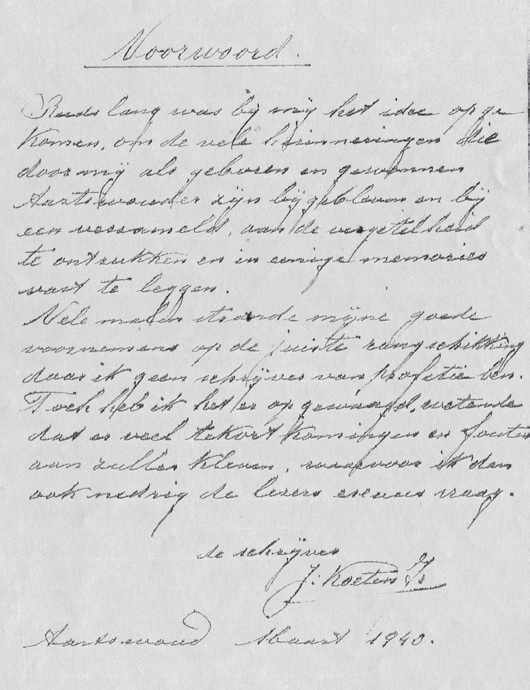 Voorwoord.
Reeds lang was bij mij het idee opge
komen, om de vele herinneringen die
door mij als geboren en gewonnen
Aartswouder zijn bijgebleven en bij
een verzameld, aan de vergetelheid
te ontrukken en in eenige memories
vast te leggen.
Vele malen strande mijne goede
voornemens op de juiste rangschikking
daar ik geen schrijver van profetie ben.
Toch heb ik het er op gewaagd, wetende
dat er veel tekortkomingen en fouten
aan zullen kleven, waarvoor ik dan
ook nedrig de lezers excuus vraag.
de schrijver
J. Koeten Js
Aartswoud Maart 1940.